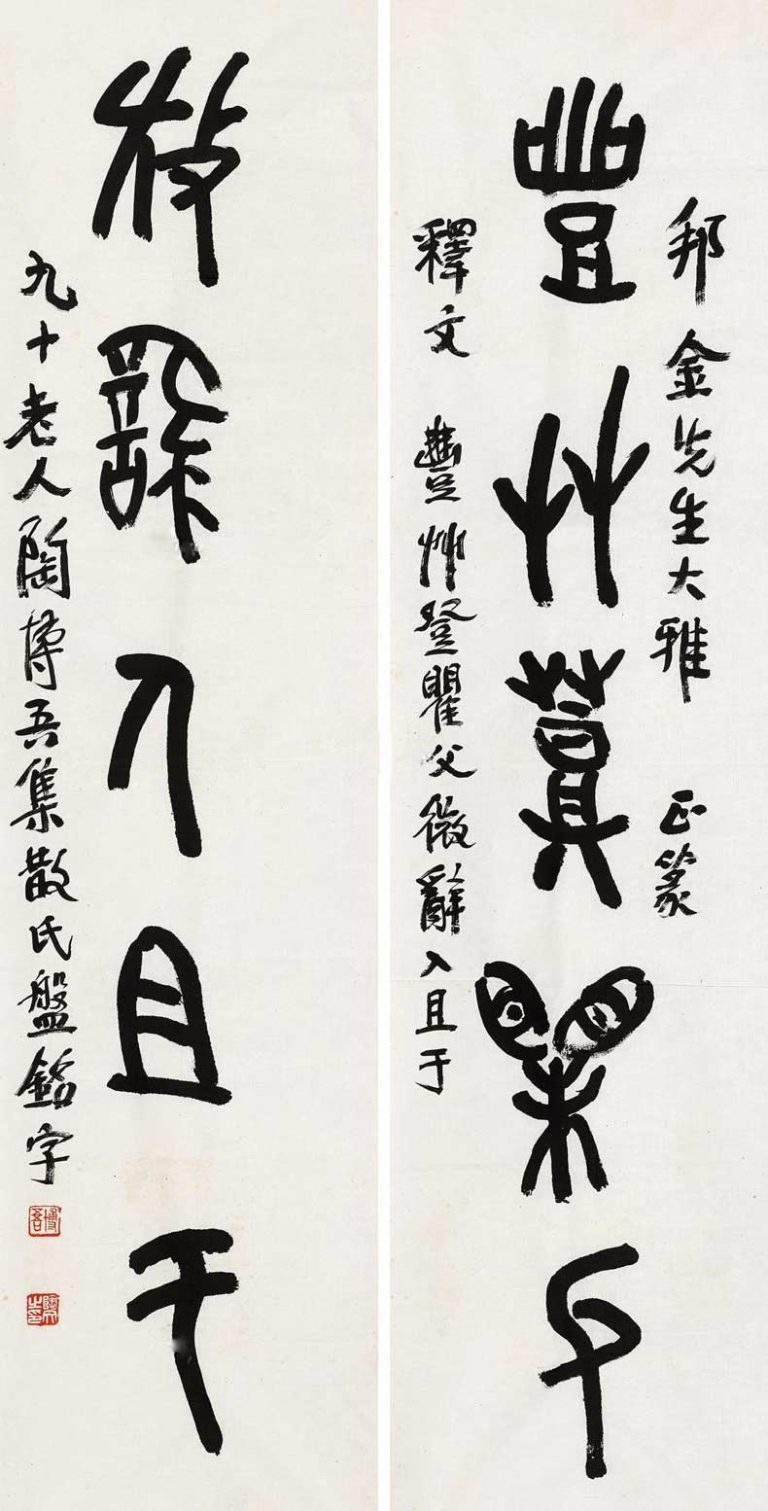 邦金先生大雅 正篆
豐艸登瞿父
釋文 豐艸登瞿父微辭入且于
微辭入且于
九十老人陶博吾集散氏盤銘字
博吾